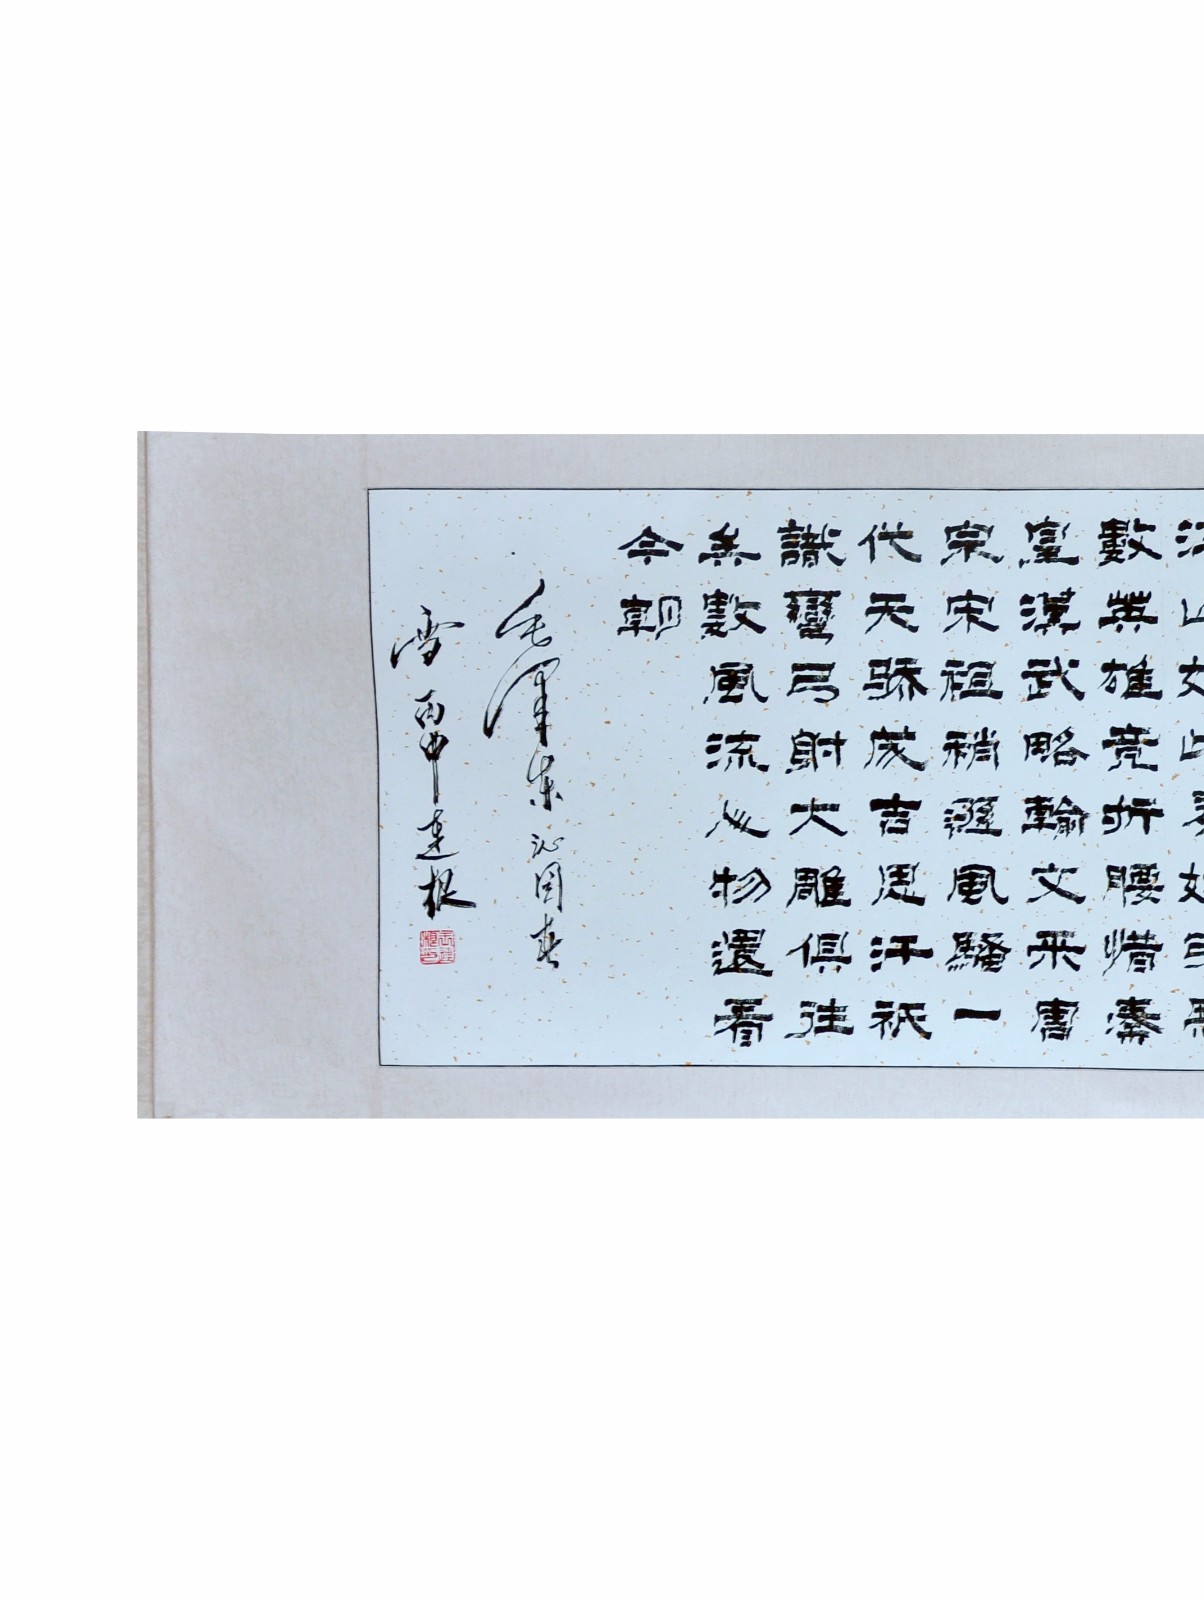 數英雄竞折腰惜秦
皇漢武略輸文采唐
宗宋祖稍遜風騷一
代天骄成吉思汗祇
識彎弓射大雕俱往
矣數風流人物還看
今朝
毛澤東沁園春
雪丙申建根